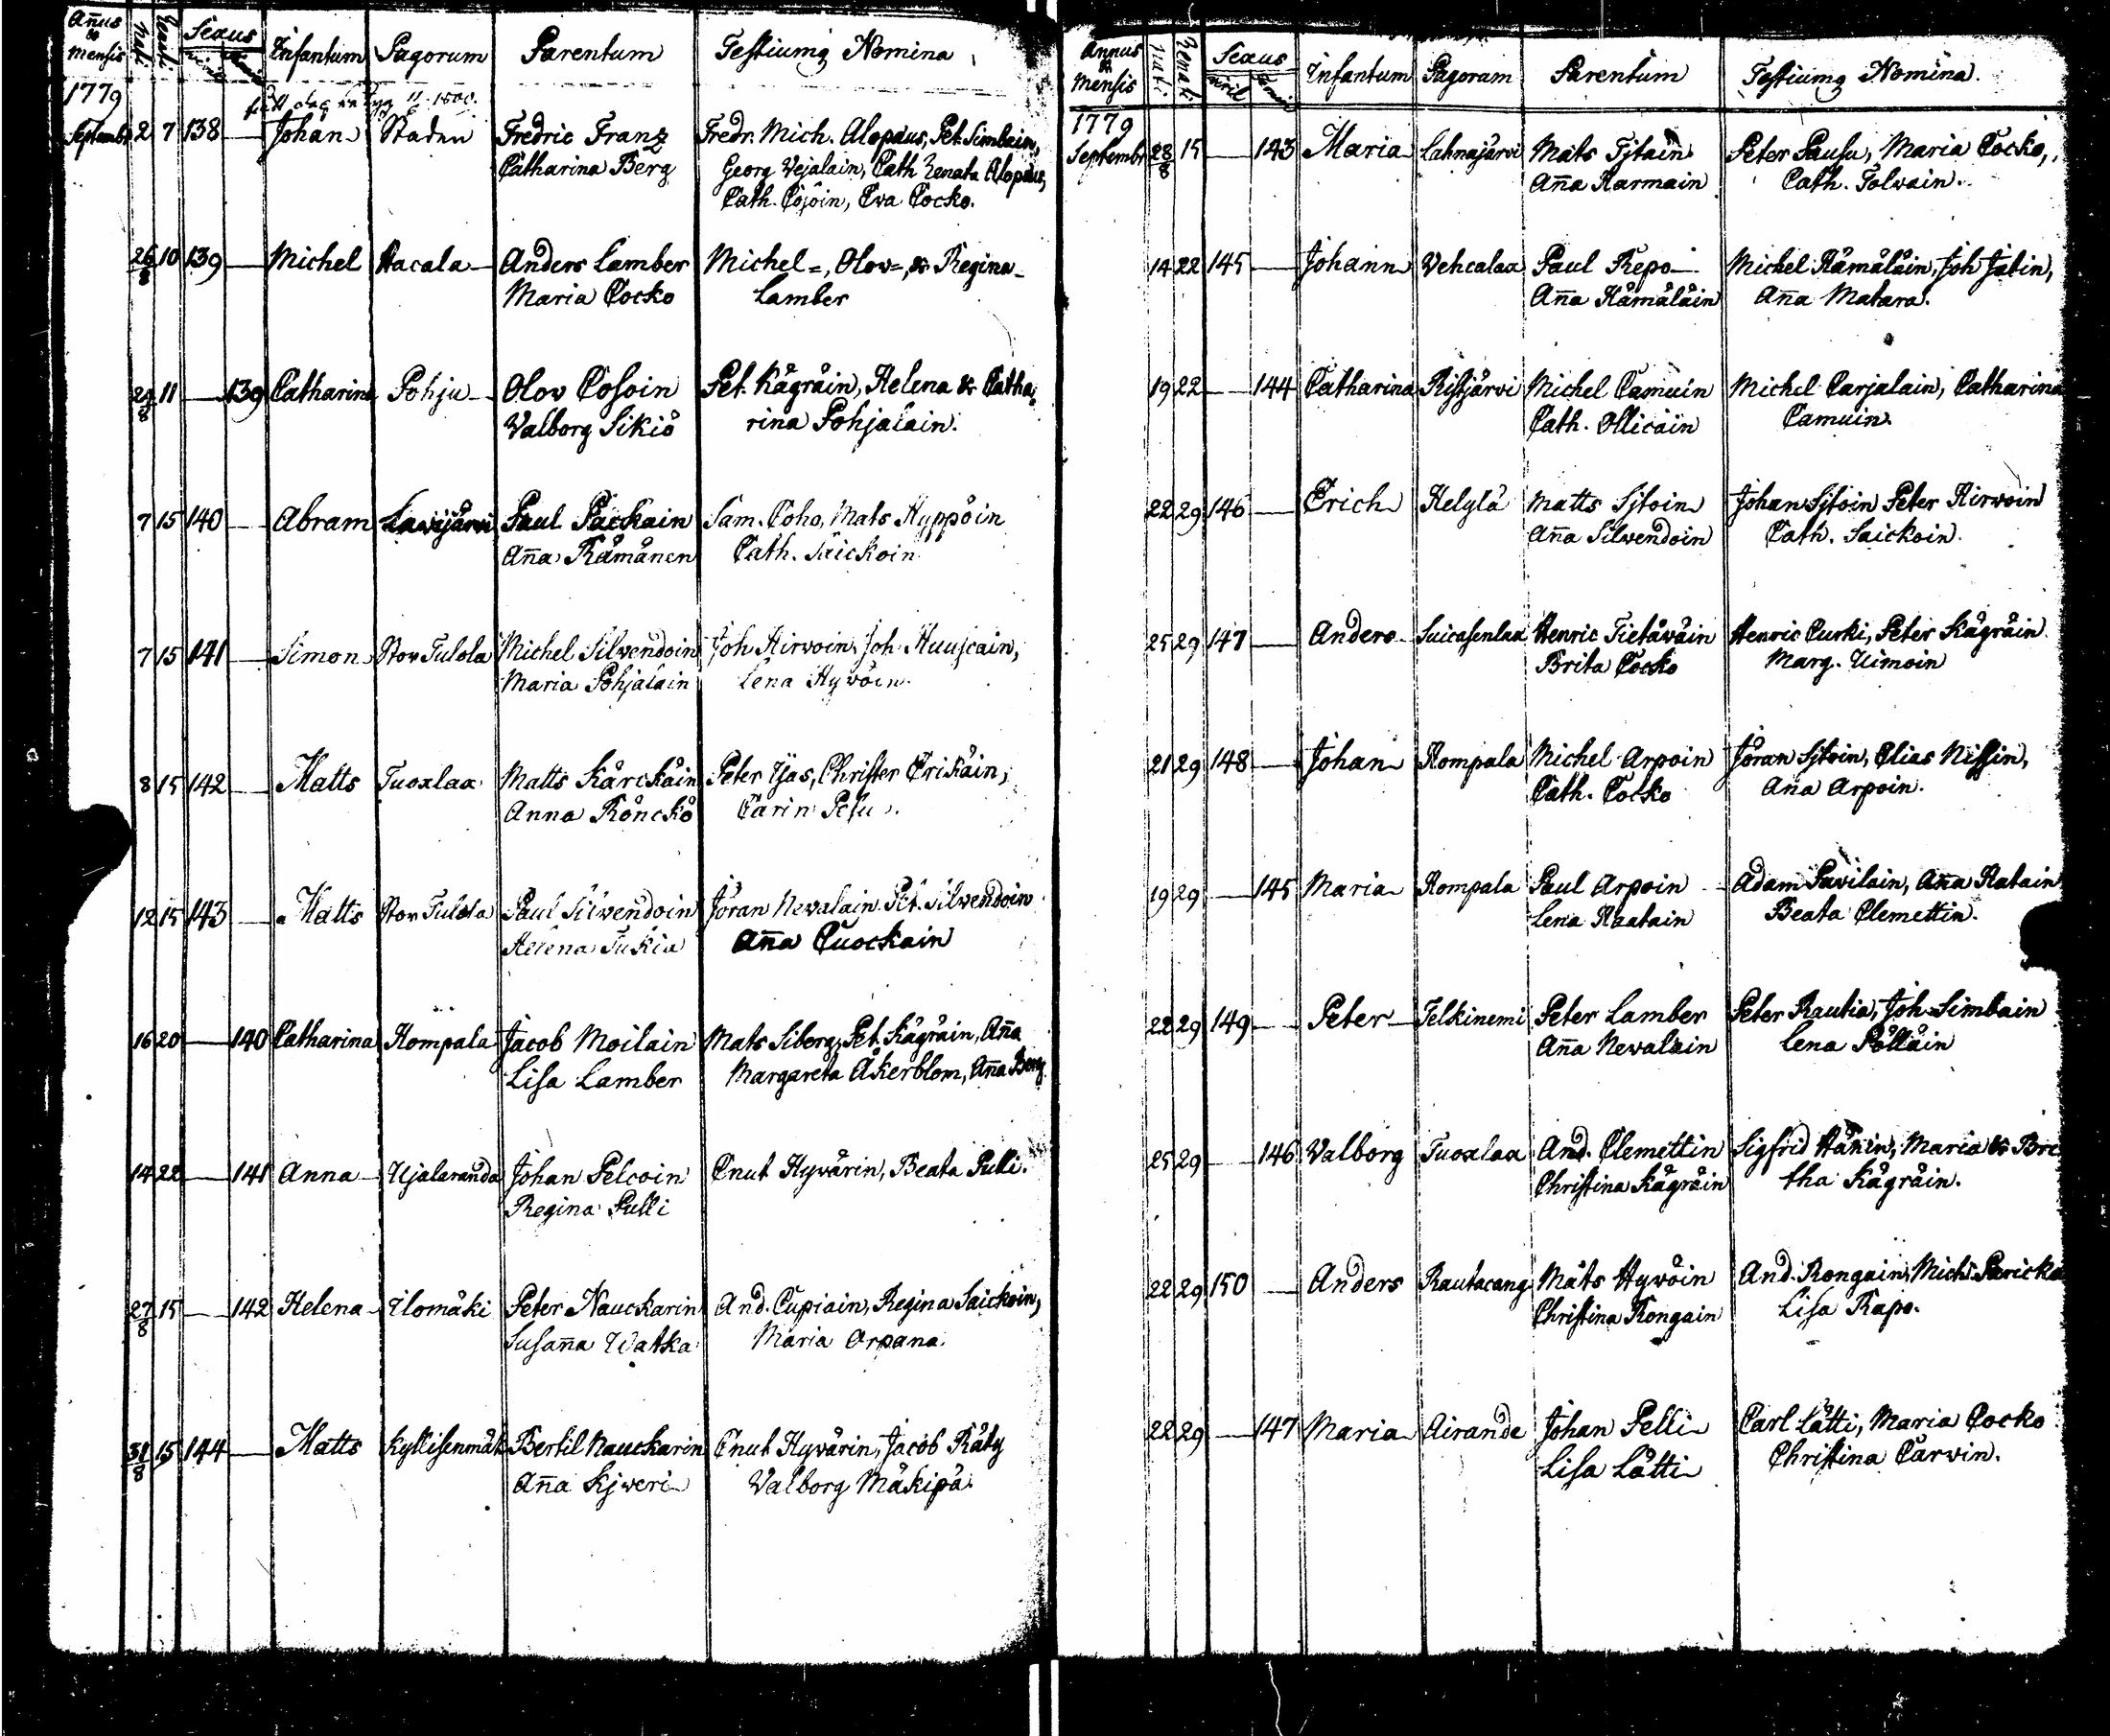 Añus & Mensis Nati Renati Sexus Infantum Pagorum Parentum Testiumq Nomina
1779
Septembr 2 7 138 — Johan Staden Fredric Franz Fredr. Mich. Alopæus, Pet. Simbain,
Catharina Berg Georg Vejalain, Cath Renata Alopæus,
Cath. Cojoin, Eva Cocko.
26/8 10 139 — Michel Hacala Anders Lamber Michel =, Olov =, & Regina
Maria Cocko Lamber
29/8 11 — 139 Catharina Pohju Olov Cosoin Pet. Kägräin, Helena & Catha
Valborg Sikiö rina Pohjalain.
7 15 140 — Abram Lavijärvi Paul Packain Sam. Coho, Mats Hyppöin
Aña Rämänen Cath. Saickoin
7 15 141 — Simon Stor Tulola Michel Silvendoin Joh Hirvoin, Joh. Huuscain,
Maria Pohjalain Lena Hyvöin.
8 15 142 — Matts Tuoxlax Matts Kärckäin Peter Ijas, Christer Erikäin,
Anna Rönckö Carin Pesu.
12 15 143 — Matts Stor Tulola Paul Silvendoin Jöran Nevalain Pet. Silvendoin
Helena Tukia Aña Cuockain
16 20 — 140 Catharina Kompala Jacob Moilain Mats Siberg, Pet. Kägräin, Aña
Lisa Lamber Margareta Åkerblom, Aña Berg
14 22 — 141 Anna Ujalaranda Johan Pelcoin Cnut Hyvärin, Beata Pulli.
Regina Pulli
27/8 15 — 142 Helena Ilomäki Peter Nauckarin And. Cupiain, Regina Saickoin,
Susaña Watka Maria Orpana.
31/8 15 144 — Matts Kyllisenmäk Bertil Nauckarin Cnut Hyvärin, Jacob Räty
Aña Kjveri Valborg Mäkipä.
Annus & Mensis Nati Renati Sexus Infantum Pagorum Parentum Testiumq Nomina.
1779
Septembr 28/8 15 — 143 Maria Lahnajärvi Mats Tjtain Peter Pausu, Maria Cocko,
Aña Karmain Cath. Tolvain.
14 22 145 — Johann Vehcalax Paul Repo Michel Hämäläin, Joh Jatin,
Aña Hämäläin Aña Matara.
19 22 — 144 Catharina Ristjärvi Michel Camuin Michel Carjalain, Catharina
Cath. Ollicain Camuin.
22 29 146 — Erich Helylä Matts Sjtoin Johan Sjtoin Peter Hirvoin
Aña Silvendoin Cath. Saickoin.
25 29 147 — Anders Suicasenlax Henric Tietäväin Henric Curki, Peter Kägräin
Brita Cocko Marg. Uimoin
21 29 148 — Johan Kompala Michel Arpoin Jöran Sjtoin, Elias Nissin,
Cath. Cocko Aña Arpoin.
19 29 — 145 Maria Kompala Paul Arpoin Adam Savilain, Aña Ratain
Lena Raatain Beata Clemettin.
22 29 149 — Peter Telkinemi Peter Lamber Peter Rautia, Joh Simbain
Aña Nevalain Lena Pölläin
25 29 — 146 Valborg Tuoxlax And. Clemettin Sigfrid Hänin, Maria & Bri
Christina Kägräin tha Kägräin.
22 29 150 — Anders Rautacang Mats Hyvöin And. Rongain, Mich. Paricka
Christina Rongain Lisa Rapo.
22 29 — 147 Maria Airande Johan Pelli Carl Lätti, Maria Cocko
Lisa Lätti Christina Carvin.